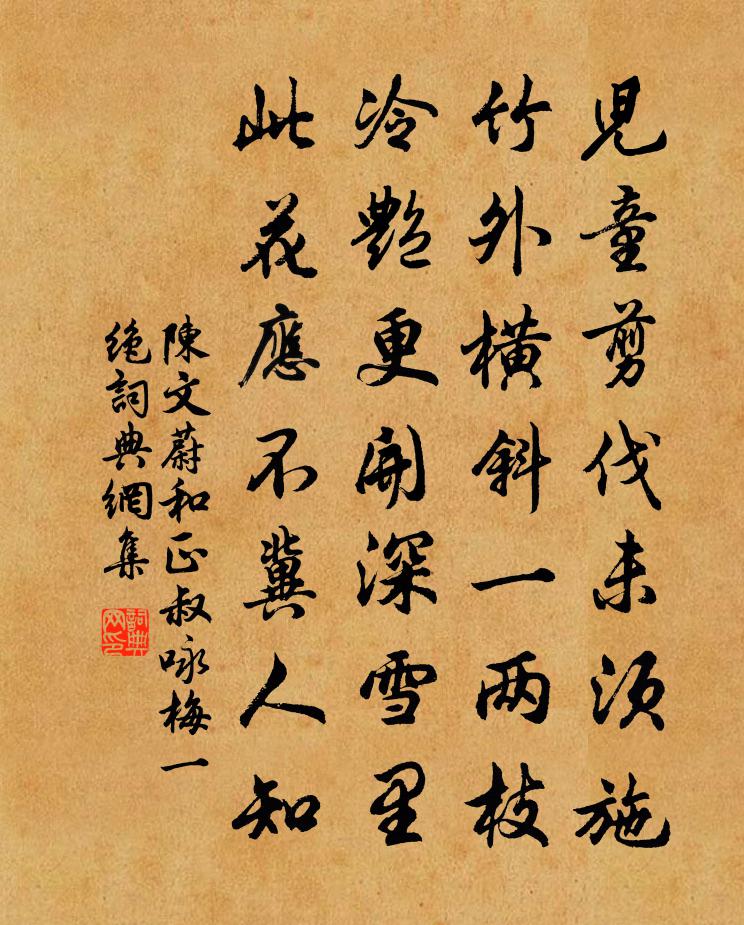 児童剪伐未須施
竹外橫斜一两枝
冷艷更開深雪里
此花應不冀人知
陳文蔚和正叔咏梅一
絶詞典網集
詞典
网印